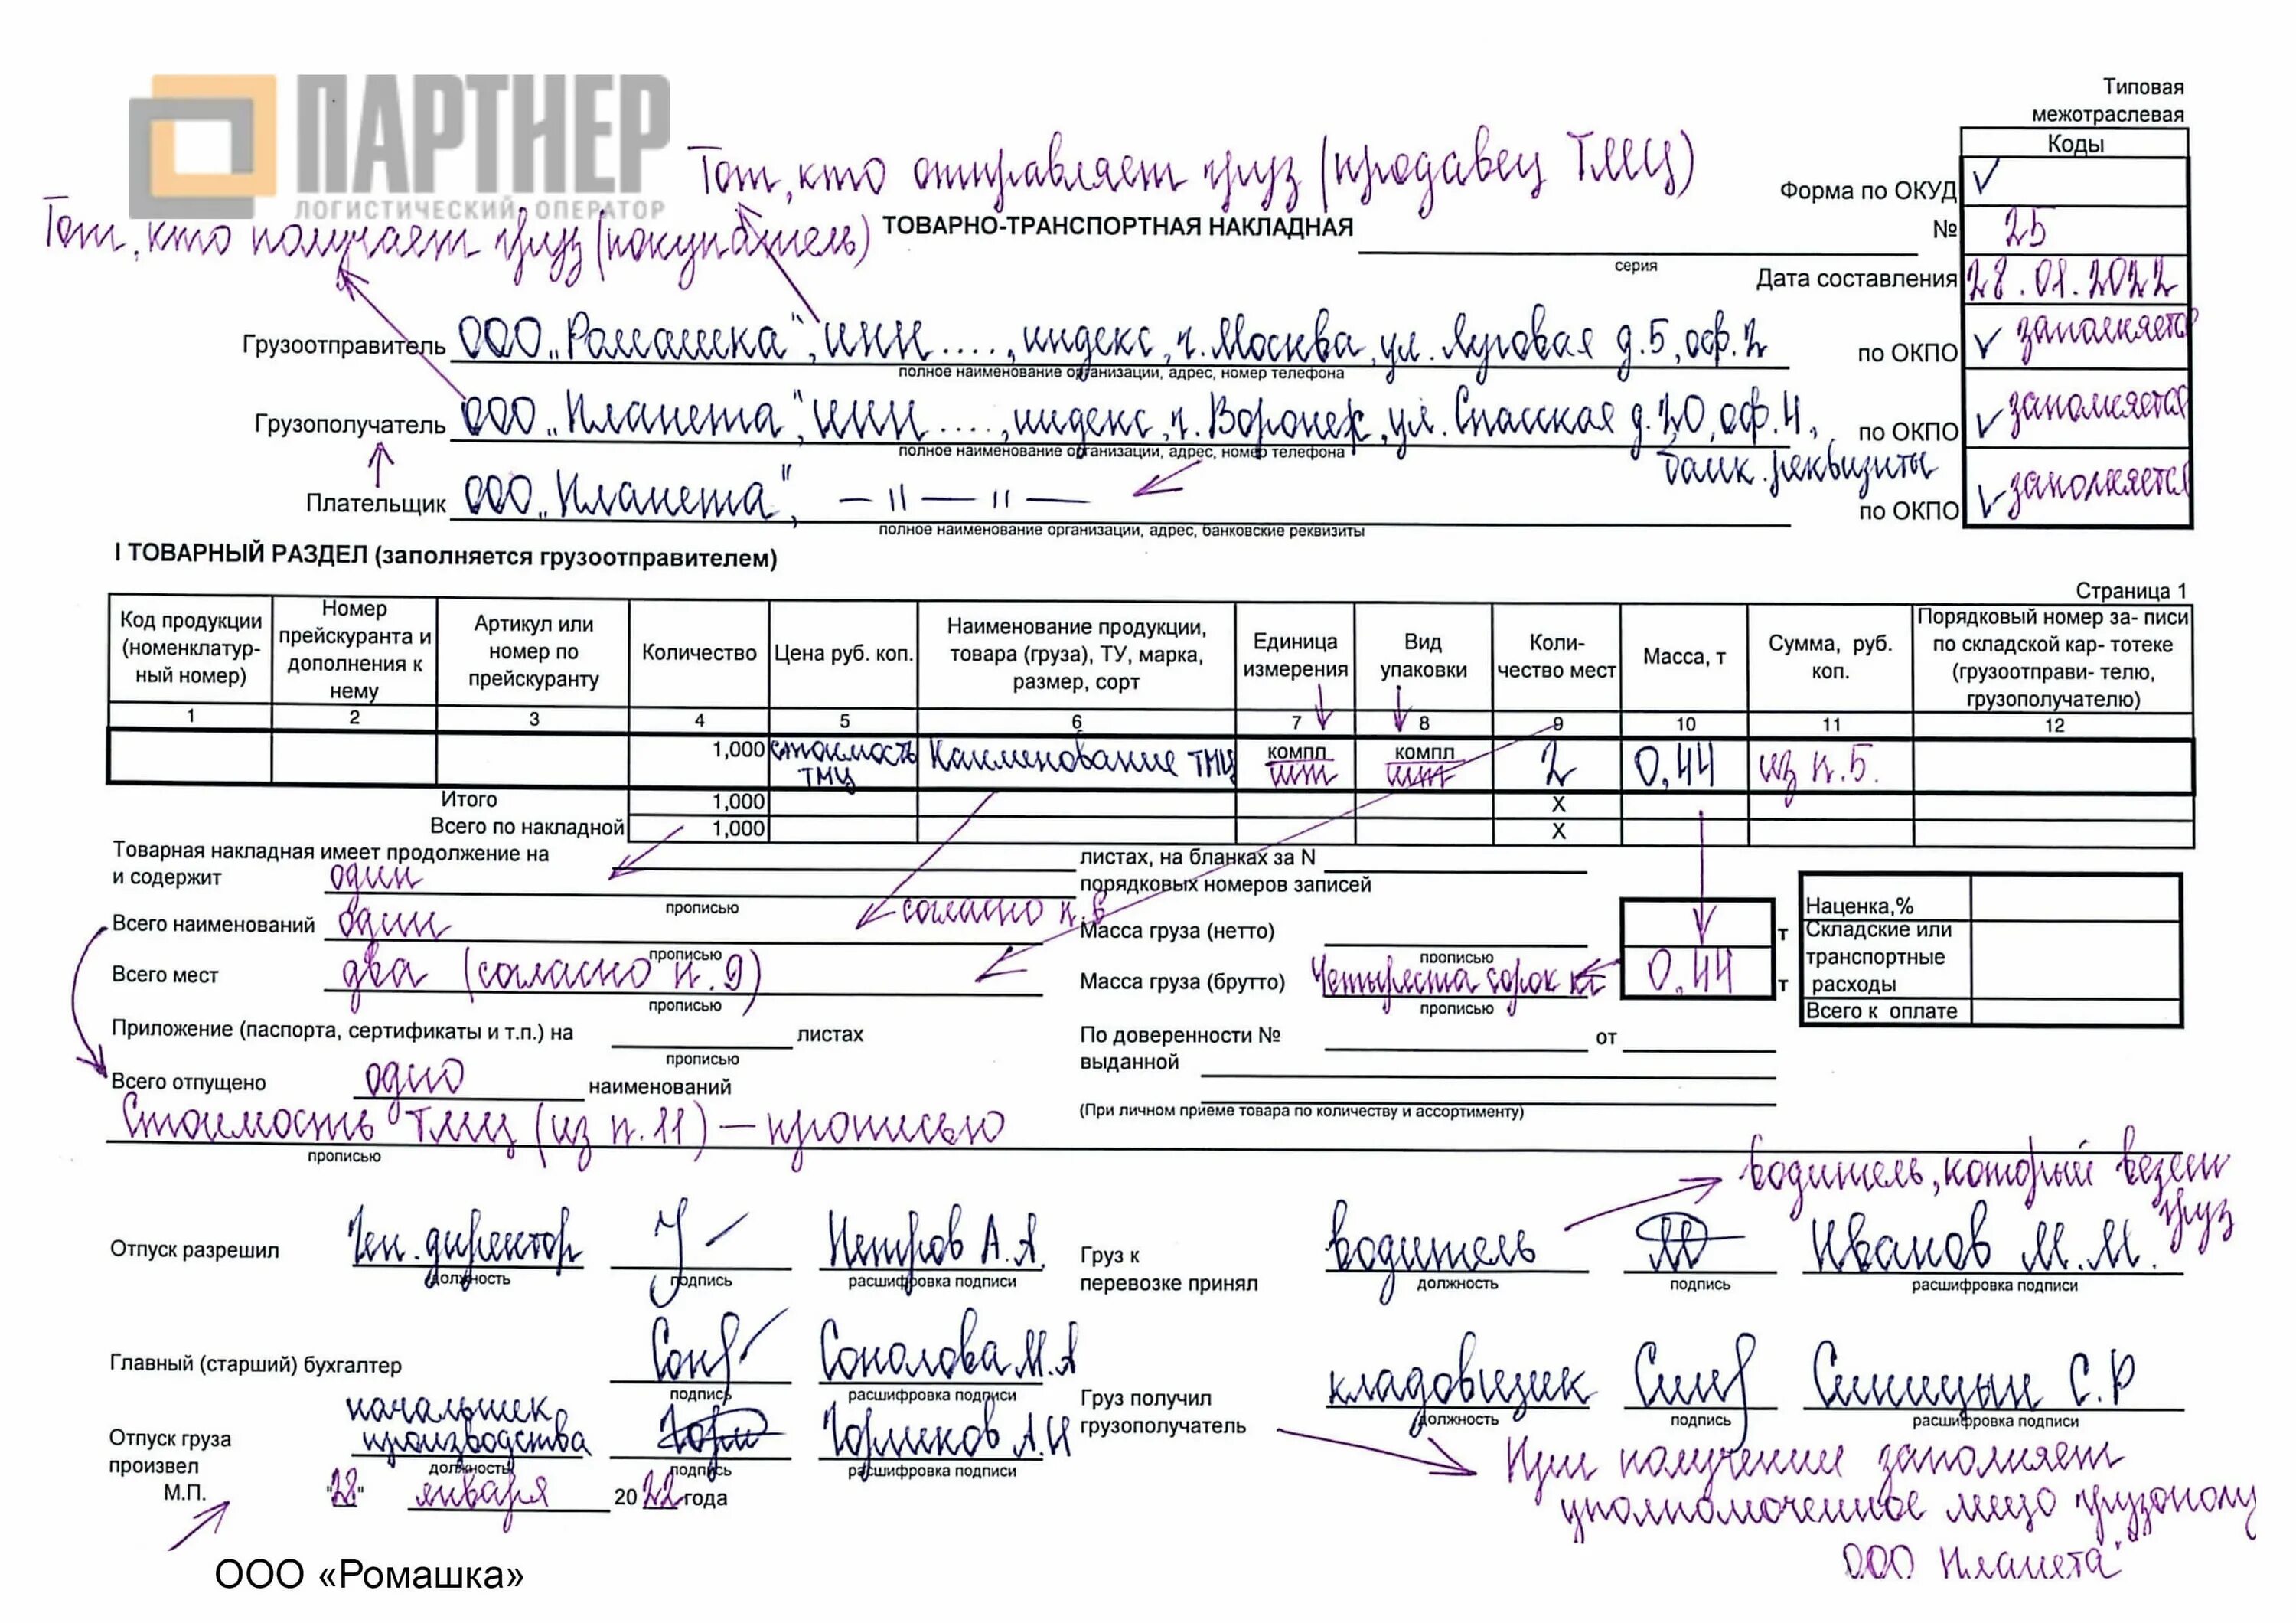 ПАРТНЕР
ЛОГИСТИЧЕСКИЙ ОПЕРАТОР
Типовая
межотраслевая
Коды
Тот, кто отправляет груз (продавец ТМЦ)
Форма по ОКУД
Тот, кто получает груз (покупатель)
ТОВАРНО-ТРАНСПОРТНАЯ НАКЛАДНАЯ
№ 25
серия
Дата составления 28.01.2022
Грузоотправитель ООО „Ромашка", ИНН ...., индекс, г. Москва, ул. Луговая д. 5, оф. 2 по ОКПО заполняется
полное наименование организации, адрес, номер телефона
Грузополучатель ООО „Планета", ИНН ...., индекс, г. Воронеж, ул. Спасская д. 20, оф. 4, по ОКПО заполняется
полное наименование организации, адрес, номер телефона
банк. реквизиты
Плательщик ООО „Планета", — 11 — 11 — по ОКПО заполняется
полное наименование организации, адрес, банковские реквизиты
I ТОВАРНЫЙ РАЗДЕЛ (заполняется грузоотправителем)
Страница 1
Код продукции (номенклатур- ный номер)
Номер прейскуранта и дополнения к нему
Артикул или номер по прейскуранту
Количество
Цена руб. коп.
Наименование продукции, товара (груза), ТУ, марка, размер, сорт
Единица измерения
Вид упаковки
Коли- чество мест
Масса, т
Сумма, руб. коп.
Порядковый номер за- писи по складской кар- тотеке (грузоотправи- телю, грузополучателю)
1 2 3 4 5 6 7 8 9 10 11 12
1,000 стоимость ТМЦ Наименование ТМЦ компл шт компл шт 2 0,44 из п.5.
Итого 1,000 X
Всего по накладной 1,000 X
Товарная накладная имеет продолжение на листах, на бланках за N
и содержит один порядковых номеров записей
прописью
Всего наименований один согласно п.6
прописью
Масса груза (нетто) т
прописью
Всего мест два (согласно п.9)
прописью
Масса груза (брутто) Четыреста сорок кг 0,44 т
прописью
Наценка,%
Складские или транспортные расходы
Всего к оплате
Приложение (паспорта, сертификаты и т.п.) на листах
прописью
По доверенности № от
выданной
Всего отпущено одно наименований
(При личном приеме товара по количеству и ассортименту)
Стоимость ТМЦ (из п.11) — прописью
прописью
водитель, который везет груз
Отпуск разрешил Ген. директор Петров А.А.
должность подпись расшифровка подписи
Груз к перевозке принял водитель Иванов М.М.
должность подпись расшифровка подписи
Главный (старший) бухгалтер Соколова М.А
подпись расшифровка подписи
Груз получил грузополучатель кладовщик Синицын С.Р
должность подпись расшифровка подписи
Отпуск груза произвел начальник производства Горшков А.И
должность подпись расшифровка подписи
М.П. "28" января 2022 года
При получении заполняет
уполномоченное лицо грузополу
ООО Планета"
ООО «Ромашка»